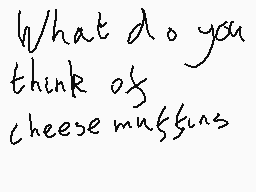 What do you
think of
cheese muffins